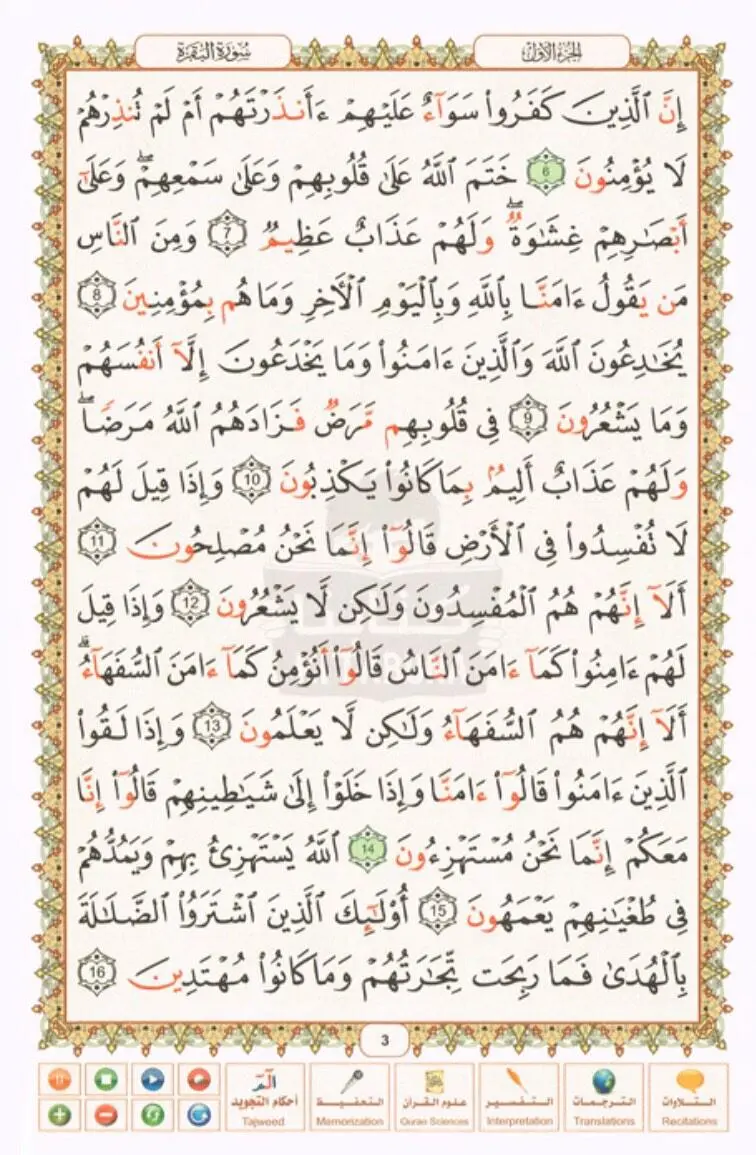 الجزء الأول
سورة البقرة
إِنَّ ٱلَّذِينَ كَفَرُوا۟ سَوَآءٌ عَلَيْهِمْ ءَأَنذَرْتَهُمْ أَمْ لَمْ تُنذِرْهُمْ
لَا يُؤْمِنُونَ 6 خَتَمَ ٱللَّهُ عَلَىٰ قُلُوبِهِمْ وَعَلَىٰ سَمْعِهِمْ ۖ وَعَلَىٰٓ
أَبْصَـٰرِهِمْ غِشَـٰوَةٌ ۖ وَلَهُمْ عَذَابٌ عَظِيمٌ 7 وَمِنَ ٱلنَّاسِ
مَن يَقُولُ ءَامَنَّا بِٱللَّهِ وَبِٱلْيَوْمِ ٱلْـَٔاخِرِ وَمَا هُم بِمُؤْمِنِينَ 8
يُخَـٰدِعُونَ ٱللَّهَ وَٱلَّذِينَ ءَامَنُوا۟ وَمَا يَخْدَعُونَ إِلَّآ أَنفُسَهُمْ
وَمَا يَشْعُرُونَ 9 فِى قُلُوبِهِم مَّرَضٌ فَزَادَهُمُ ٱللَّهُ مَرَضًا ۖ
وَلَهُمْ عَذَابٌ أَلِيمٌۢ بِمَا كَانُوا۟ يَكْذِبُونَ 10 وَإِذَا قِيلَ لَهُمْ
لَا تُفْسِدُوا۟ فِى ٱلْأَرْضِ قَالُوٓا۟ إِنَّمَا نَحْنُ مُصْلِحُونَ 11
أَلَآ إِنَّهُمْ هُمُ ٱلْمُفْسِدُونَ وَلَـٰكِن لَّا يَشْعُرُونَ 12 وَإِذَا قِيلَ
لَهُمْ ءَامِنُوا۟ كَمَآ ءَامَنَ ٱلنَّاسُ قَالُوٓا۟ أَنُؤْمِنُ كَمَآ ءَامَنَ ٱلسُّفَهَآءُ ۗ
أَلَآ إِنَّهُمْ هُمُ ٱلسُّفَهَآءُ وَلَـٰكِن لَّا يَعْلَمُونَ 13 وَإِذَا لَقُوا۟
ٱلَّذِينَ ءَامَنُوا۟ قَالُوٓا۟ ءَامَنَّا وَإِذَا خَلَوْا۟ إِلَىٰ شَيَـٰطِينِهِمْ قَالُوٓا۟ إِنَّا
مَعَكُمْ إِنَّمَا نَحْنُ مُسْتَهْزِءُونَ 14 ٱللَّهُ يَسْتَهْزِئُ بِهِمْ وَيَمُدُّهُمْ
فِى طُغْيَـٰنِهِمْ يَعْمَهُونَ 15 أُو۟لَـٰٓئِكَ ٱلَّذِينَ ٱشْتَرَوُا۟ ٱلضَّلَـٰلَةَ
بِٱلْهُدَىٰ فَمَا رَبِحَت تِّجَـٰرَتُهُمْ وَمَا كَانُوا۟ مُهْتَدِينَ 16
3
التلاوات الترجمات التفسير علوم القرآن التحفيظ أحكام التجويد الٓمٓ
Recitations Translations Interpretation Quran Sciences Memorization Tajweed